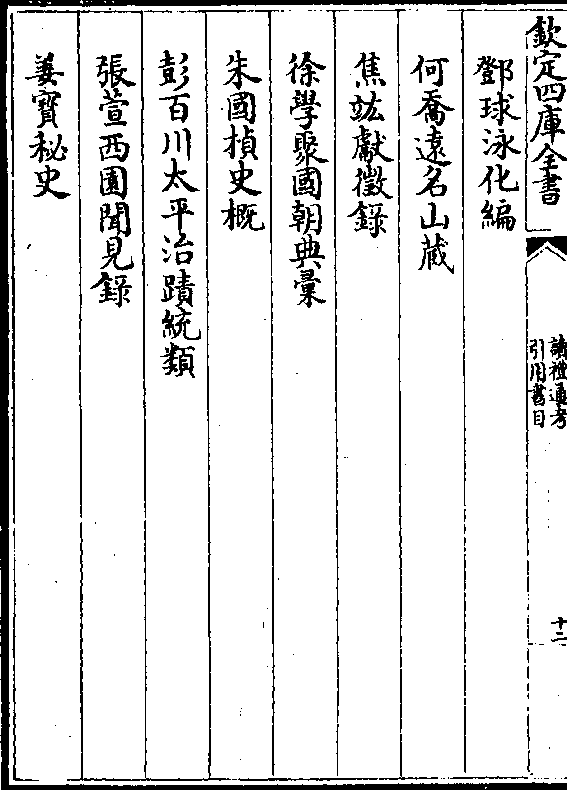 欽定四庫全書
讀禮通考
引用書目
十二
鄧球泳化編
何喬遠名山藏
焦竑獻徵錄
徐學聚國朝典彙
朱國楨史概
彭百川太平治蹟統類
張萱西園聞見錄
姜寶秘史